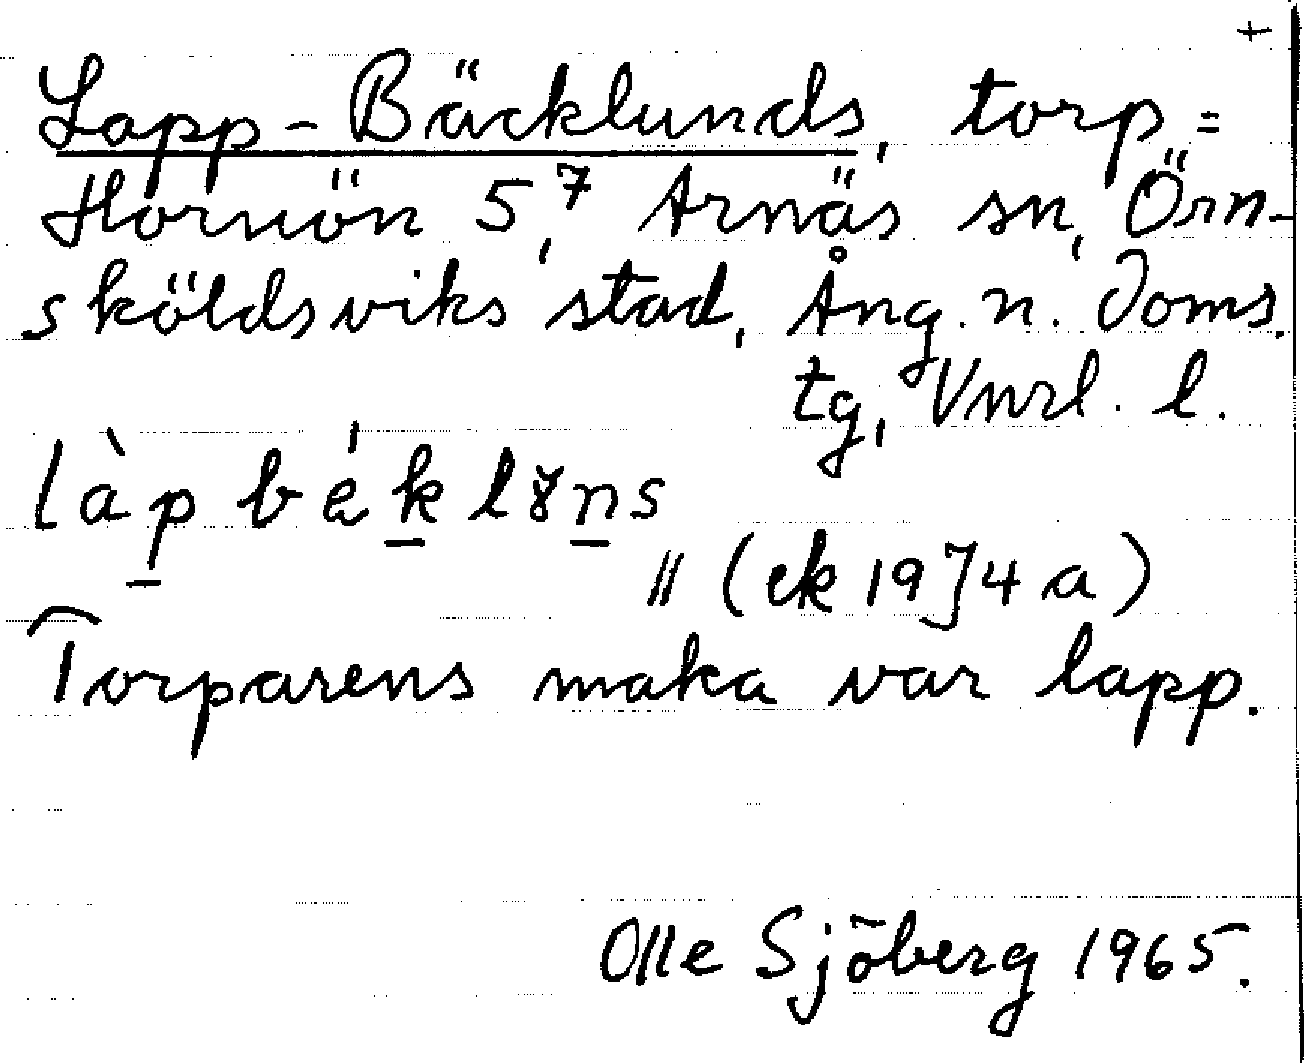 +
Lapp-Bäcklunds, torp =
Hörnön 5⁷, Arnäs sn, Örn-
sköldsviks stad, Ång. n. Doms.
tg, Vnrl. l.
làp békl ns
" (ek 19J4a)
Torparens maka var lapp.
Olle Sjöberg 1965.